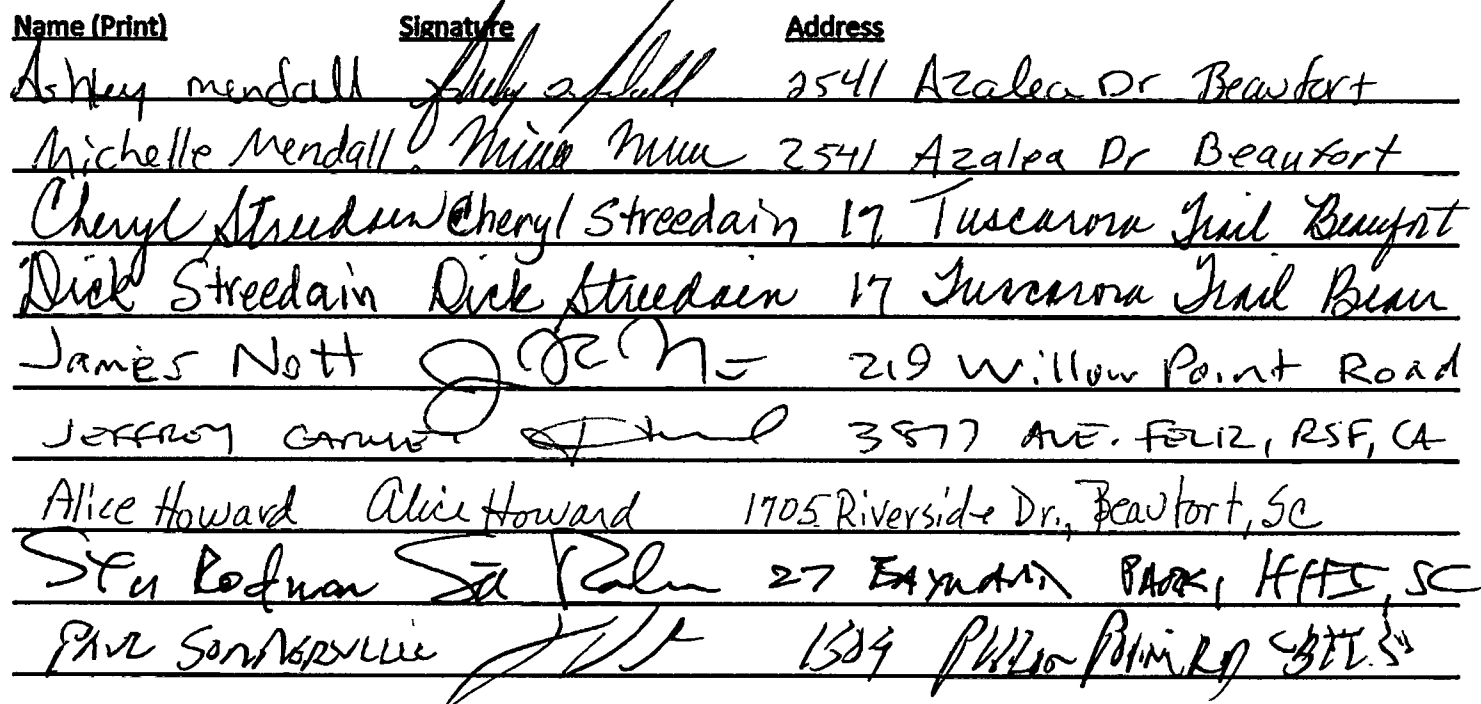 Name (Print) Signature Address
Ashley mendall 2541 Azalea Dr Beaufort
Michelle Mendall 2541 Azalea Dr Beaufort
Cheryl Streedain Cheryl Streedain 17 Tuscarora Trail Beaufort
Dick Streedain Dick Streedain 17 Tuscarora Trail Beau
James Nott 219 Willow Point Road
JEFFREY 3877 AVE. FELIZ, RSF, CA
Alice Howard Alice Howard 1705 Riverside Dr., Beaufort, SC
Stu Rodman Stu Rodman 27 PARK, HHI, SC
PAUL SOMMERVILLE 1509